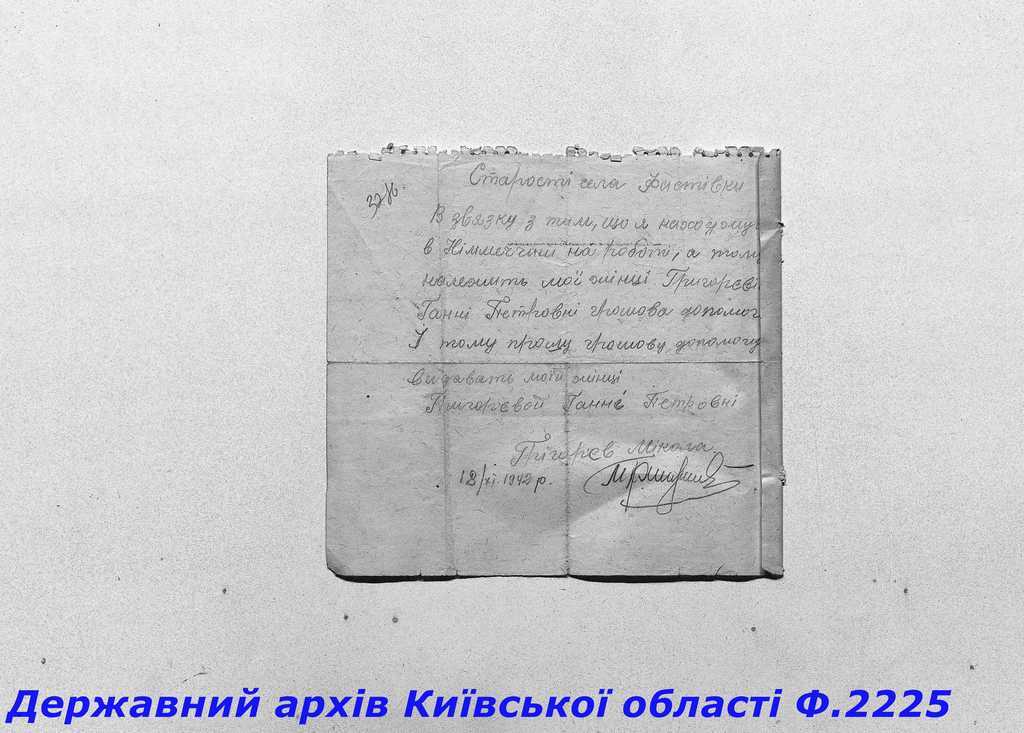 Старості села Фастівки
В звязку з тим, що я находжус
в Німмеччині на роботі, а тому
належить моі жінці Григорєві
Ганні Пєтровні грошова допомог
І тому прошу грошову допомогу
видавать моій жінці
Григорєвой Ганнє Пєтровні
Григорєв Мікола
18/XI. 1942 р.
Державний архів Київської області Ф.2225